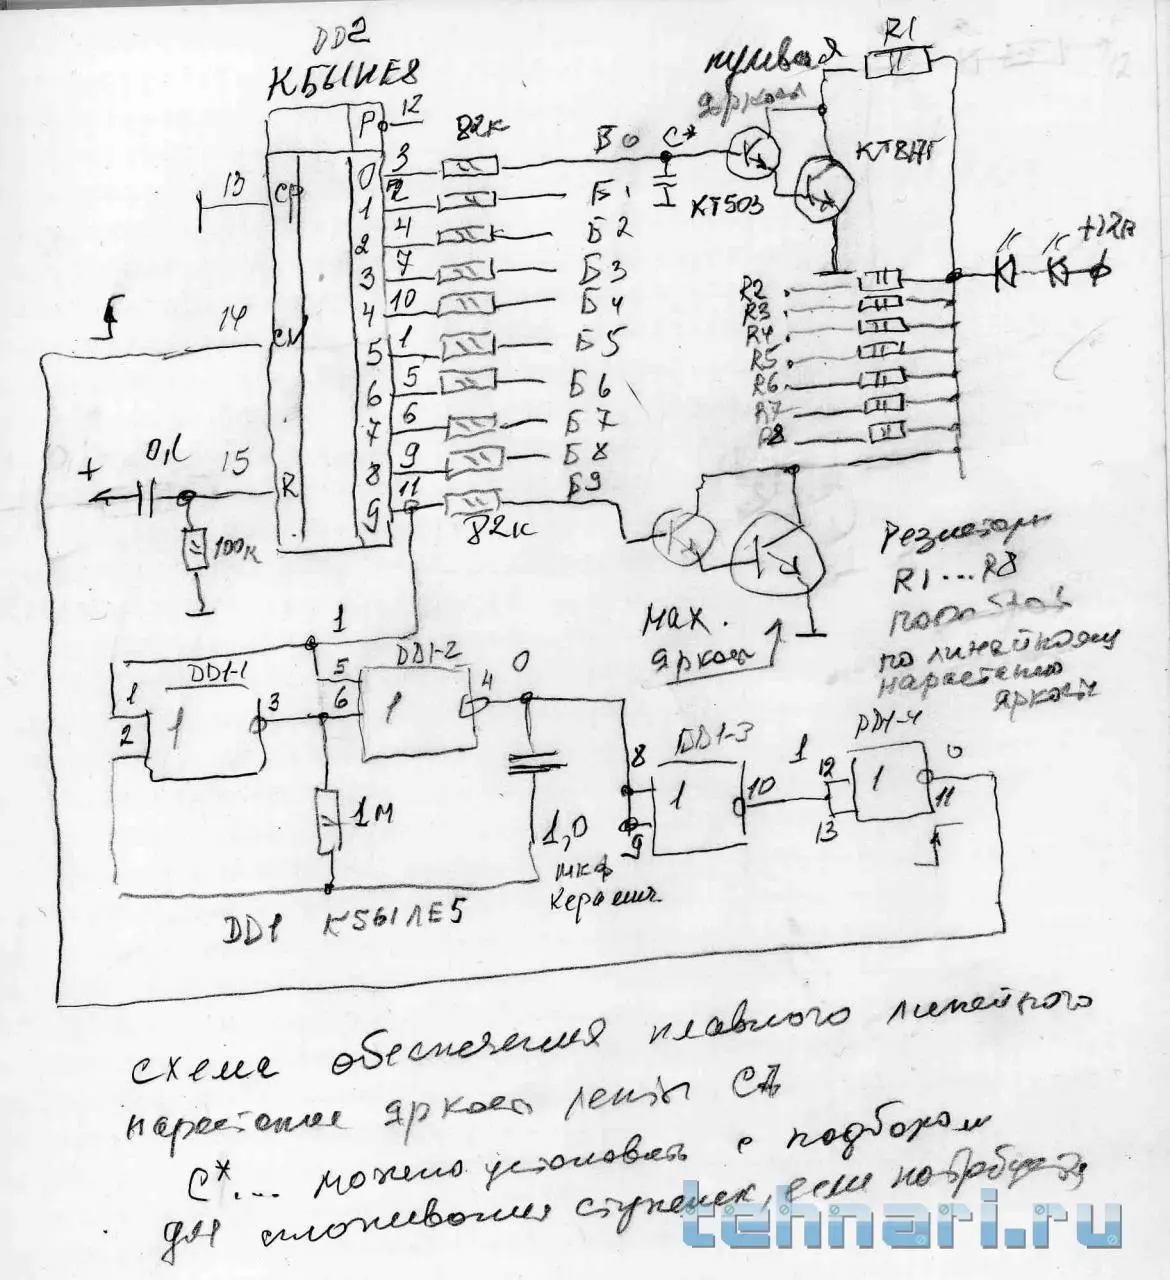 DD2
К561ИЕ8
P 12
0 3 82к Б0 С*
1 2 Б1
2 4 Б2
3 7 Б3
4 10 Б4
5 1 Б5
6 5 Б6
7 6 Б7
8 9 Б8
9 11 82к Б9
13 CP
14 CN
15 R
+ 0,1
100к
нулевая
яркость
R1
КТ503
КТ817Г
+12в
R2
R3
R4
R5
R6
R7
R8
мах.
яркость
Резисторы
R1...R8
по линейному
нарастанию
яркости
1
DD1-1
1
2
1
3
DD1-2
5
6
1
4
0
1м
1,0
мкф
керамич.
DD1-3
8
9
1
10
1
DD1-4
12
13
1
0
11
DD1 К561ЛЕ5
схема обеспечения плавного линейного
нарастания яркости ленты СД
С*... можно установить с подбором
для сглаживания ступенек, если потребуется
tehnari.ru